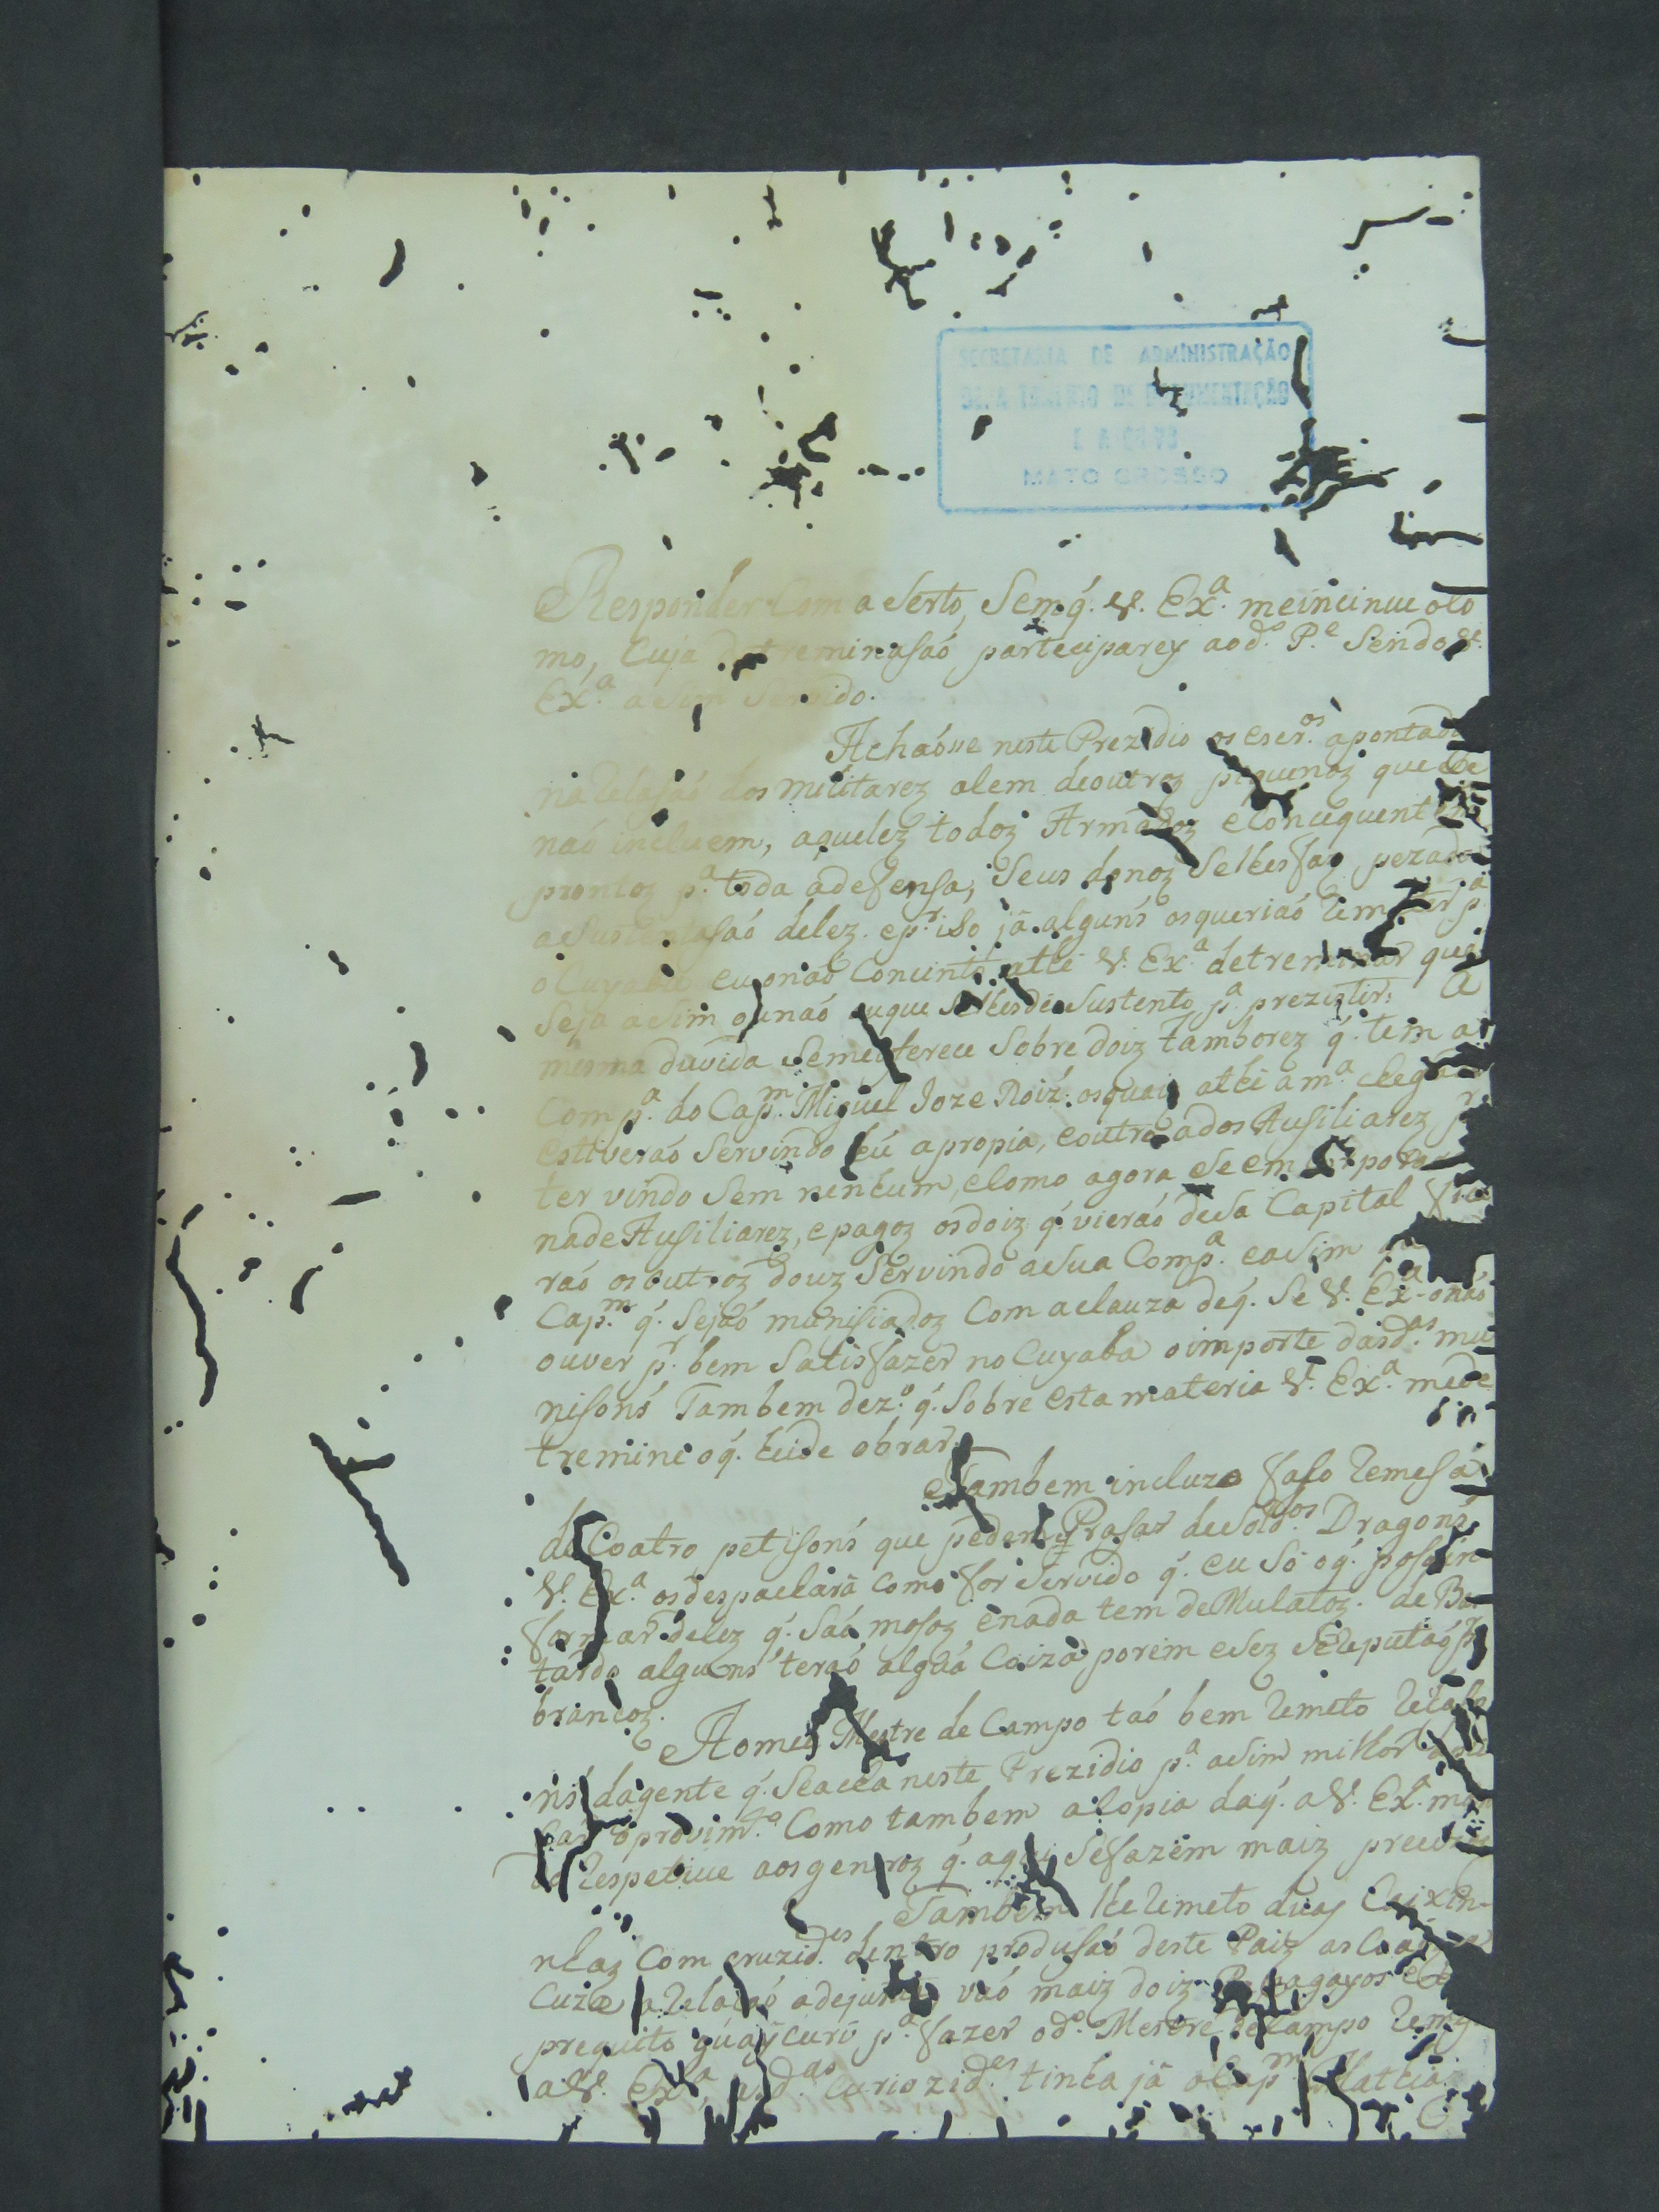 SECRETARIA DE ADMINISTRAÇÃO
DE DOCUMENTAÇÃO
MATO GROSSO
Responder Com aserto, Sem q̃. V. Ex.ª meincinue oCo
mo, Cuja detreminasaó parteciparey aod.º P.e Sendo V.
Ex.ª asim Servido.
Achaósse neste Prezidio os escr.os apontad
na Relasaó dos Militarez alem deoutroz piquenoz que Se
naó incluem, aquelez todoz Armadoz eConcequent
prontoz p.ª toda adefensa, Seus donoz Selhes faz pezad
aSustentasaó délez. ep.r iSo já alguns osqueriaó
o Cuyabá euonaó Concinto athé V. Ex.ª detreminar que
Seja asim ounaó euque Selhesdé Sustento p.ª prezistir: A
mesma duvida Semeoferece Sobre doiz tamborez q̃. tem a
Comp.ª do Cap.m Miguel Joze Roiz. osquais athé am.ª chegada
estiveraó Servindo hú apropia, eoutro ados Ausiliarez
ter vindo Sem nenhum, eComo agora Se em
nade Ausiliarez, epagoz osdoiz q̃. vieraó desa Capital
raó os outroz douz Servindo aSua Comp.ª easim
Cap.m q̃. Sejaó munisiadoz Com aclauza deq̃. Se V. Ex.ª onaó
ouver p.r bem Satisfazer no Cuyaba oimporte dasd.as mu
nisons Tambem dez.º q̃. Sobre esta materia V. Ex.ª mede
tremine oq̃. heide obrar.
Tambem incluzo faso Remesa
de Coatro petisons que pedem Prasar deSold.os Dragons,
V. Ex.ª osdespachará Como for Servido q̃. eu Só oq̃. poso in
formar delez q̃. Saó mosoz enada tem deMulatoz. de Bas
tardo alguns teraó algúa Coiza porem esez Seleputaó p.r
brancoz.
Aomeu Mestre de Campo taó bem Remeto
ns dagente q̃. Seacha neste Prezidio p.ª asim milhor
oprovim.to Como tambem aCopia daq̃. aV. Ex.ª
Respetive aosgenroz q̃. aqui Sefazem maiz
Tambem lheRemeto duas Caixin-
nhaz Com cruzid.es dentro produsaó deste Paiz
aRelasaó adejunta vaó maiz doiz Papagayos
prequito guaycurú p.ª fazer od.º Mestre deCampo
aV. Ex.ª asd.as Curiozid.es tinha já oCap.m Mathias